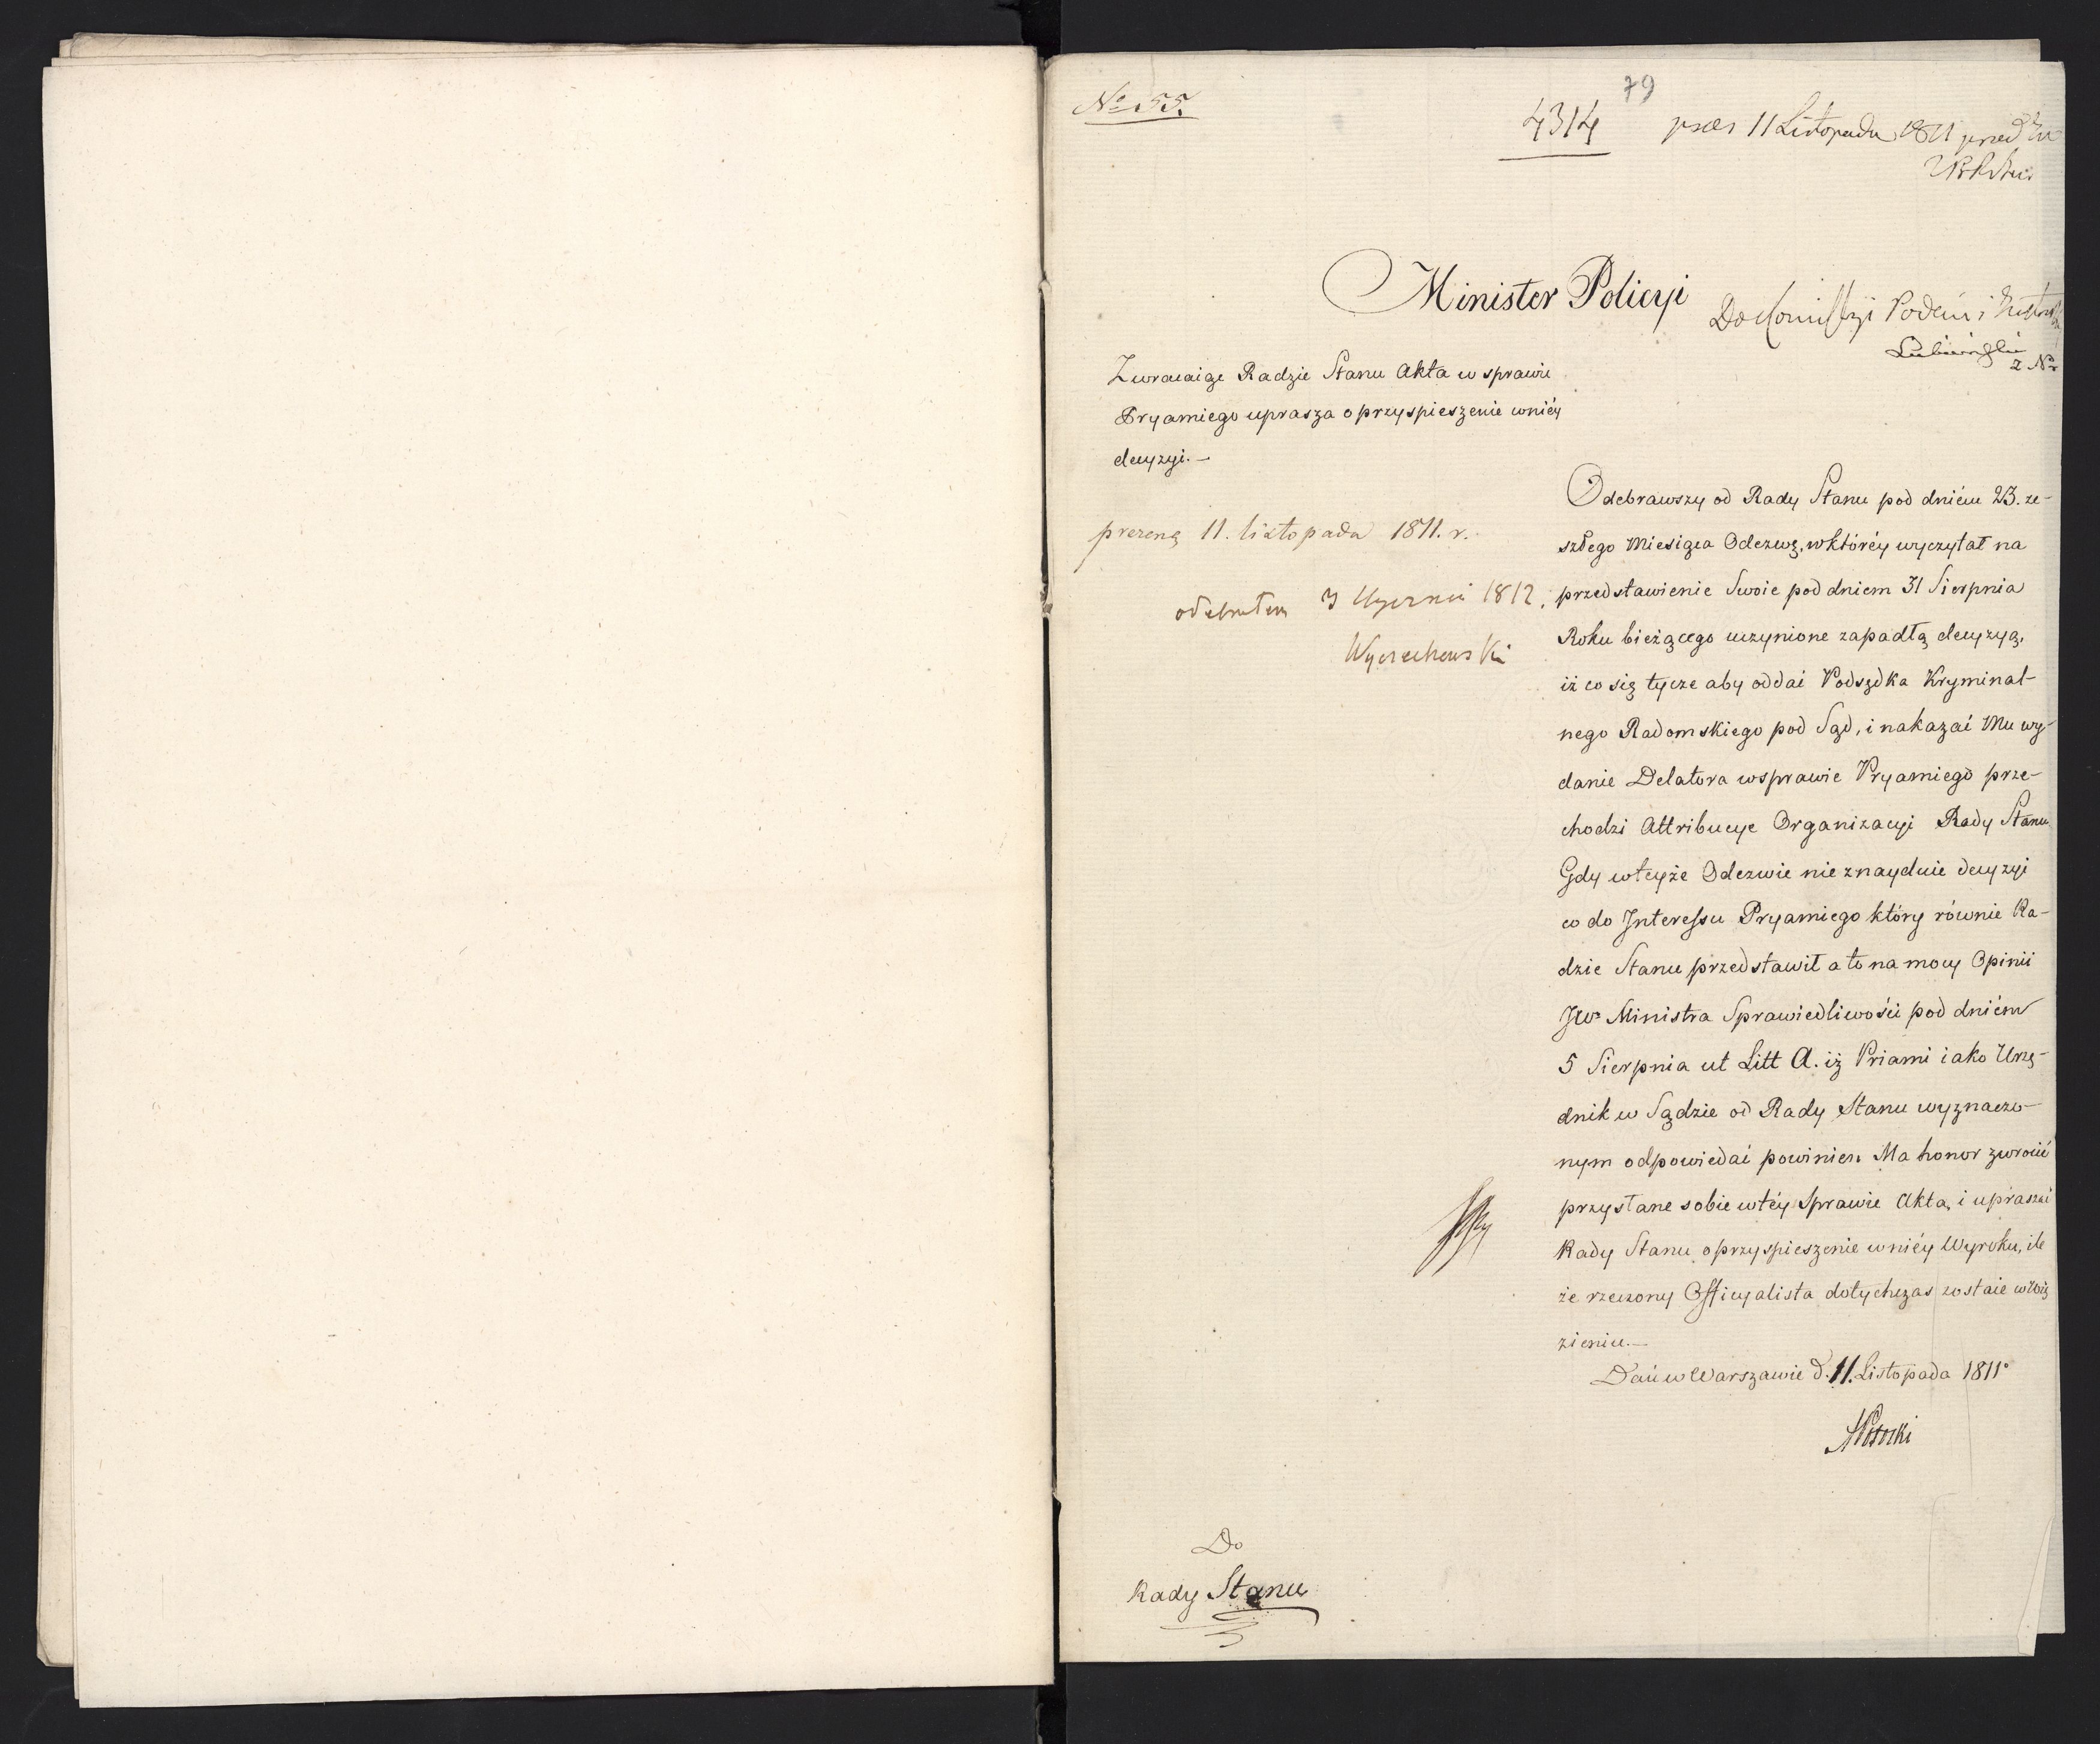 No 55.
79
4314
prez 11 Listopada 1811 przed
Minister Policyi
Do Kommissyi Podań i
Lubieński
2 Nr
Zwracaiąc Radzie Stanu Akta w sprawie
Pryamiego uprasza o przyspieszenie w niéy
decyzyi. —
prezent. 11. listopada 1811. r.
odebrałem 3 1812.
Wyczechowski
Odebrawszy od Rady Stanu pod dniém 23. ze-
szłego Miesiąca Odezwę, w któréy wyczytał na
przedstawienie Swoie pod dniem 31 Sierpnia
Roku bieżącego uczynione zapadłą decyzyą,
iż co się tycze aby oddać Podsędka Kryminal-
nego Radomskiego pod Sąd, i nakazać Mu wy-
danie Delatora w sprawie Pryamiego prze-
chodzi Attribucye Organizacyi Rady Stanu
Gdy w teyże Odezwie nie znayduie decyzyi
co do Interessu Pryamiego który równie Ra-
dzie Stanu przedstawił a to na mocy Opinii
JW. Ministra Sprawiedliwości pod dniém
5 Sierpnia ut Litt A. iż Priami iako Urzę-
dnik w Sądzie od Rady Stanu wyznaczo-
nym odpowiedać powinien. Ma honor zwrócić
przysłane sobie w téy Sprawie Akta, i upraszać
Rady Stanu o przyspieszenie w niéy Wyroku, ile
że rzeczony Officyalista dotychczas zostaie w Wię
zieniu. —
Dań w Warszawie d. 11. Listopada 1811o
APotocki
Do
Rady Stanu